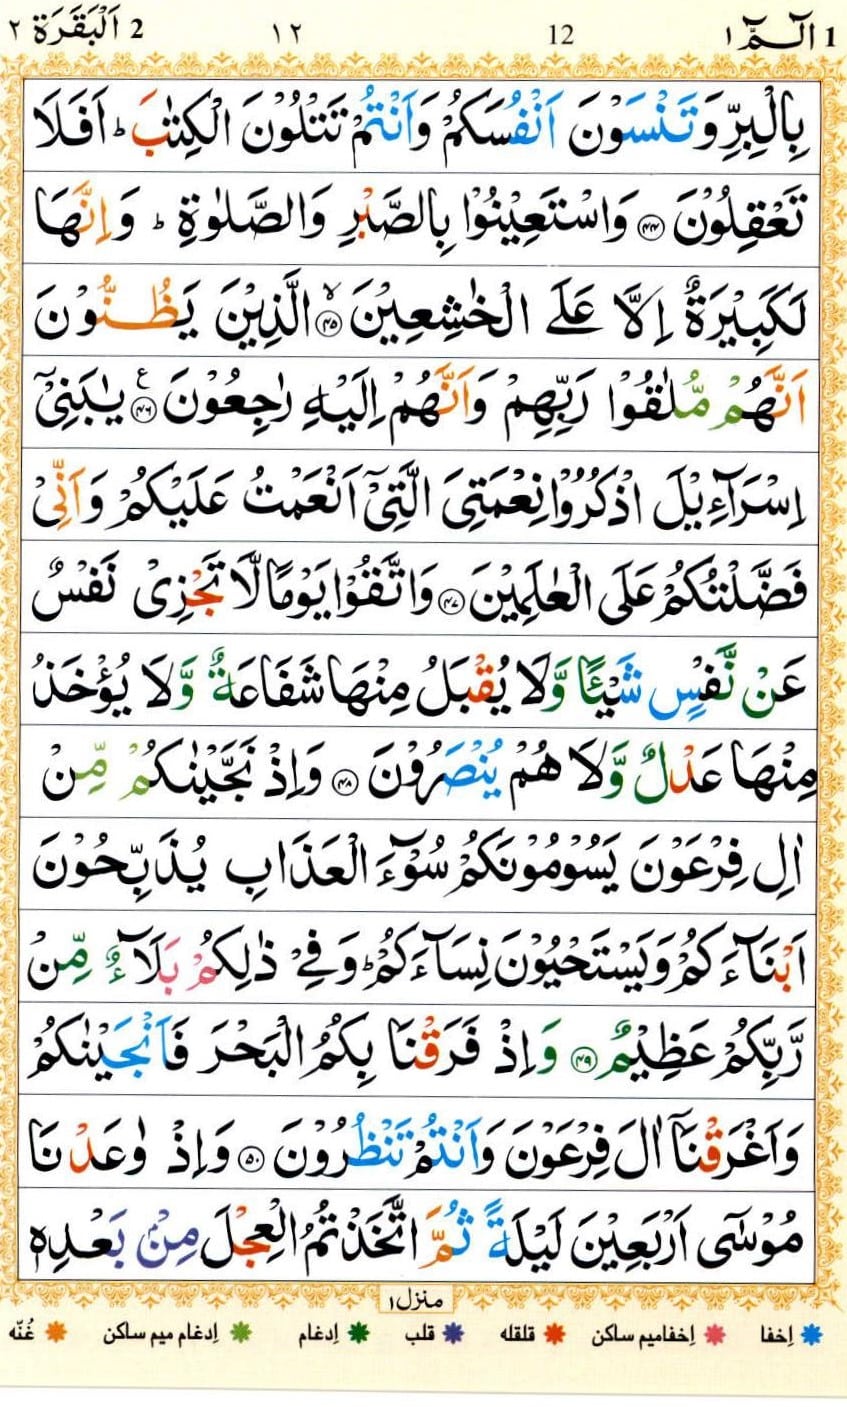 1 الٓـمّٓ ١ 12 ١٢ 2 اَلْبَقَرَة ٢
بِالْبِرِّ وَتَنْسَوْنَ اَنْفُسَكُمْ وَاَنْتُمْ تَتْلُوْنَ الْكِتٰبَ ؕ اَفَلَا
تَعْقِلُوْنَ ﴿۴۴﴾ وَاسْتَعِيْنُوْا بِالصَّبْرِ وَالصَّلٰوةِ ؕ وَاِنَّهَا
لَكَبِيْرَةٌ اِلَّا عَلَى الْخٰشِعِيْنَ ﴿۴۵﴾ۙ الَّذِيْنَ يَظُنُّوْنَ
اَنَّهُمْ مُّلٰقُوْا رَبِّهِمْ وَاَنَّهُمْ اِلَيْهِ رٰجِعُوْنَ ﴿۴۶﴾ ع يٰبَنِيْٓ
اِسْرَآءِيْلَ اذْكُرُوْا نِعْمَتِيَ الَّتِيْٓ اَنْعَمْتُ عَلَيْكُمْ وَاَنِّيْ
فَضَّلْتُكُمْ عَلَى الْعٰلَمِيْنَ ﴿۴۷﴾ وَاتَّقُوْا يَوْمًا لَّا تَجْزِيْ نَفْسٌ
عَنْ نَّفْسٍ شَيْـًٔا وَّلَا يُقْبَلُ مِنْهَا شَفَاعَةٌ وَّلَا يُؤْخَذُ
مِنْهَا عَدْلٌ وَّلَا هُمْ يُنْصَرُوْنَ ﴿۴۸﴾ وَاِذْ نَجَّيْنٰكُمْ مِّنْ
اٰلِ فِرْعَوْنَ يَسُوْمُوْنَكُمْ سُوْٓءَ الْعَذَابِ يُذَبِّحُوْنَ
اَبْنَآءَكُمْ وَيَسْتَحْيُوْنَ نِسَآءَكُمْ ؕ وَفِيْ ذٰلِكُمْ بَلَآءٌ مِّنْ
رَّبِّكُمْ عَظِيْمٌ ﴿۴۹﴾ وَاِذْ فَرَقْنَا بِكُمُ الْبَحْرَ فَاَنْجَيْنٰكُمْ
وَاَغْرَقْنَآ اٰلَ فِرْعَوْنَ وَاَنْتُمْ تَنْظُرُوْنَ ﴿۵۰﴾ وَاِذْ وٰعَدْنَا
مُوْسٰٓى اَرْبَعِيْنَ لَيْلَةً ثُمَّ اتَّخَذْتُمُ الْعِجْلَ مِنْۢ بَعْدِهٖ
منزل١
اِخفا اِخفامیم ساکن قلقله قلب اِدغام اِدغام میم ساکن غُنّه